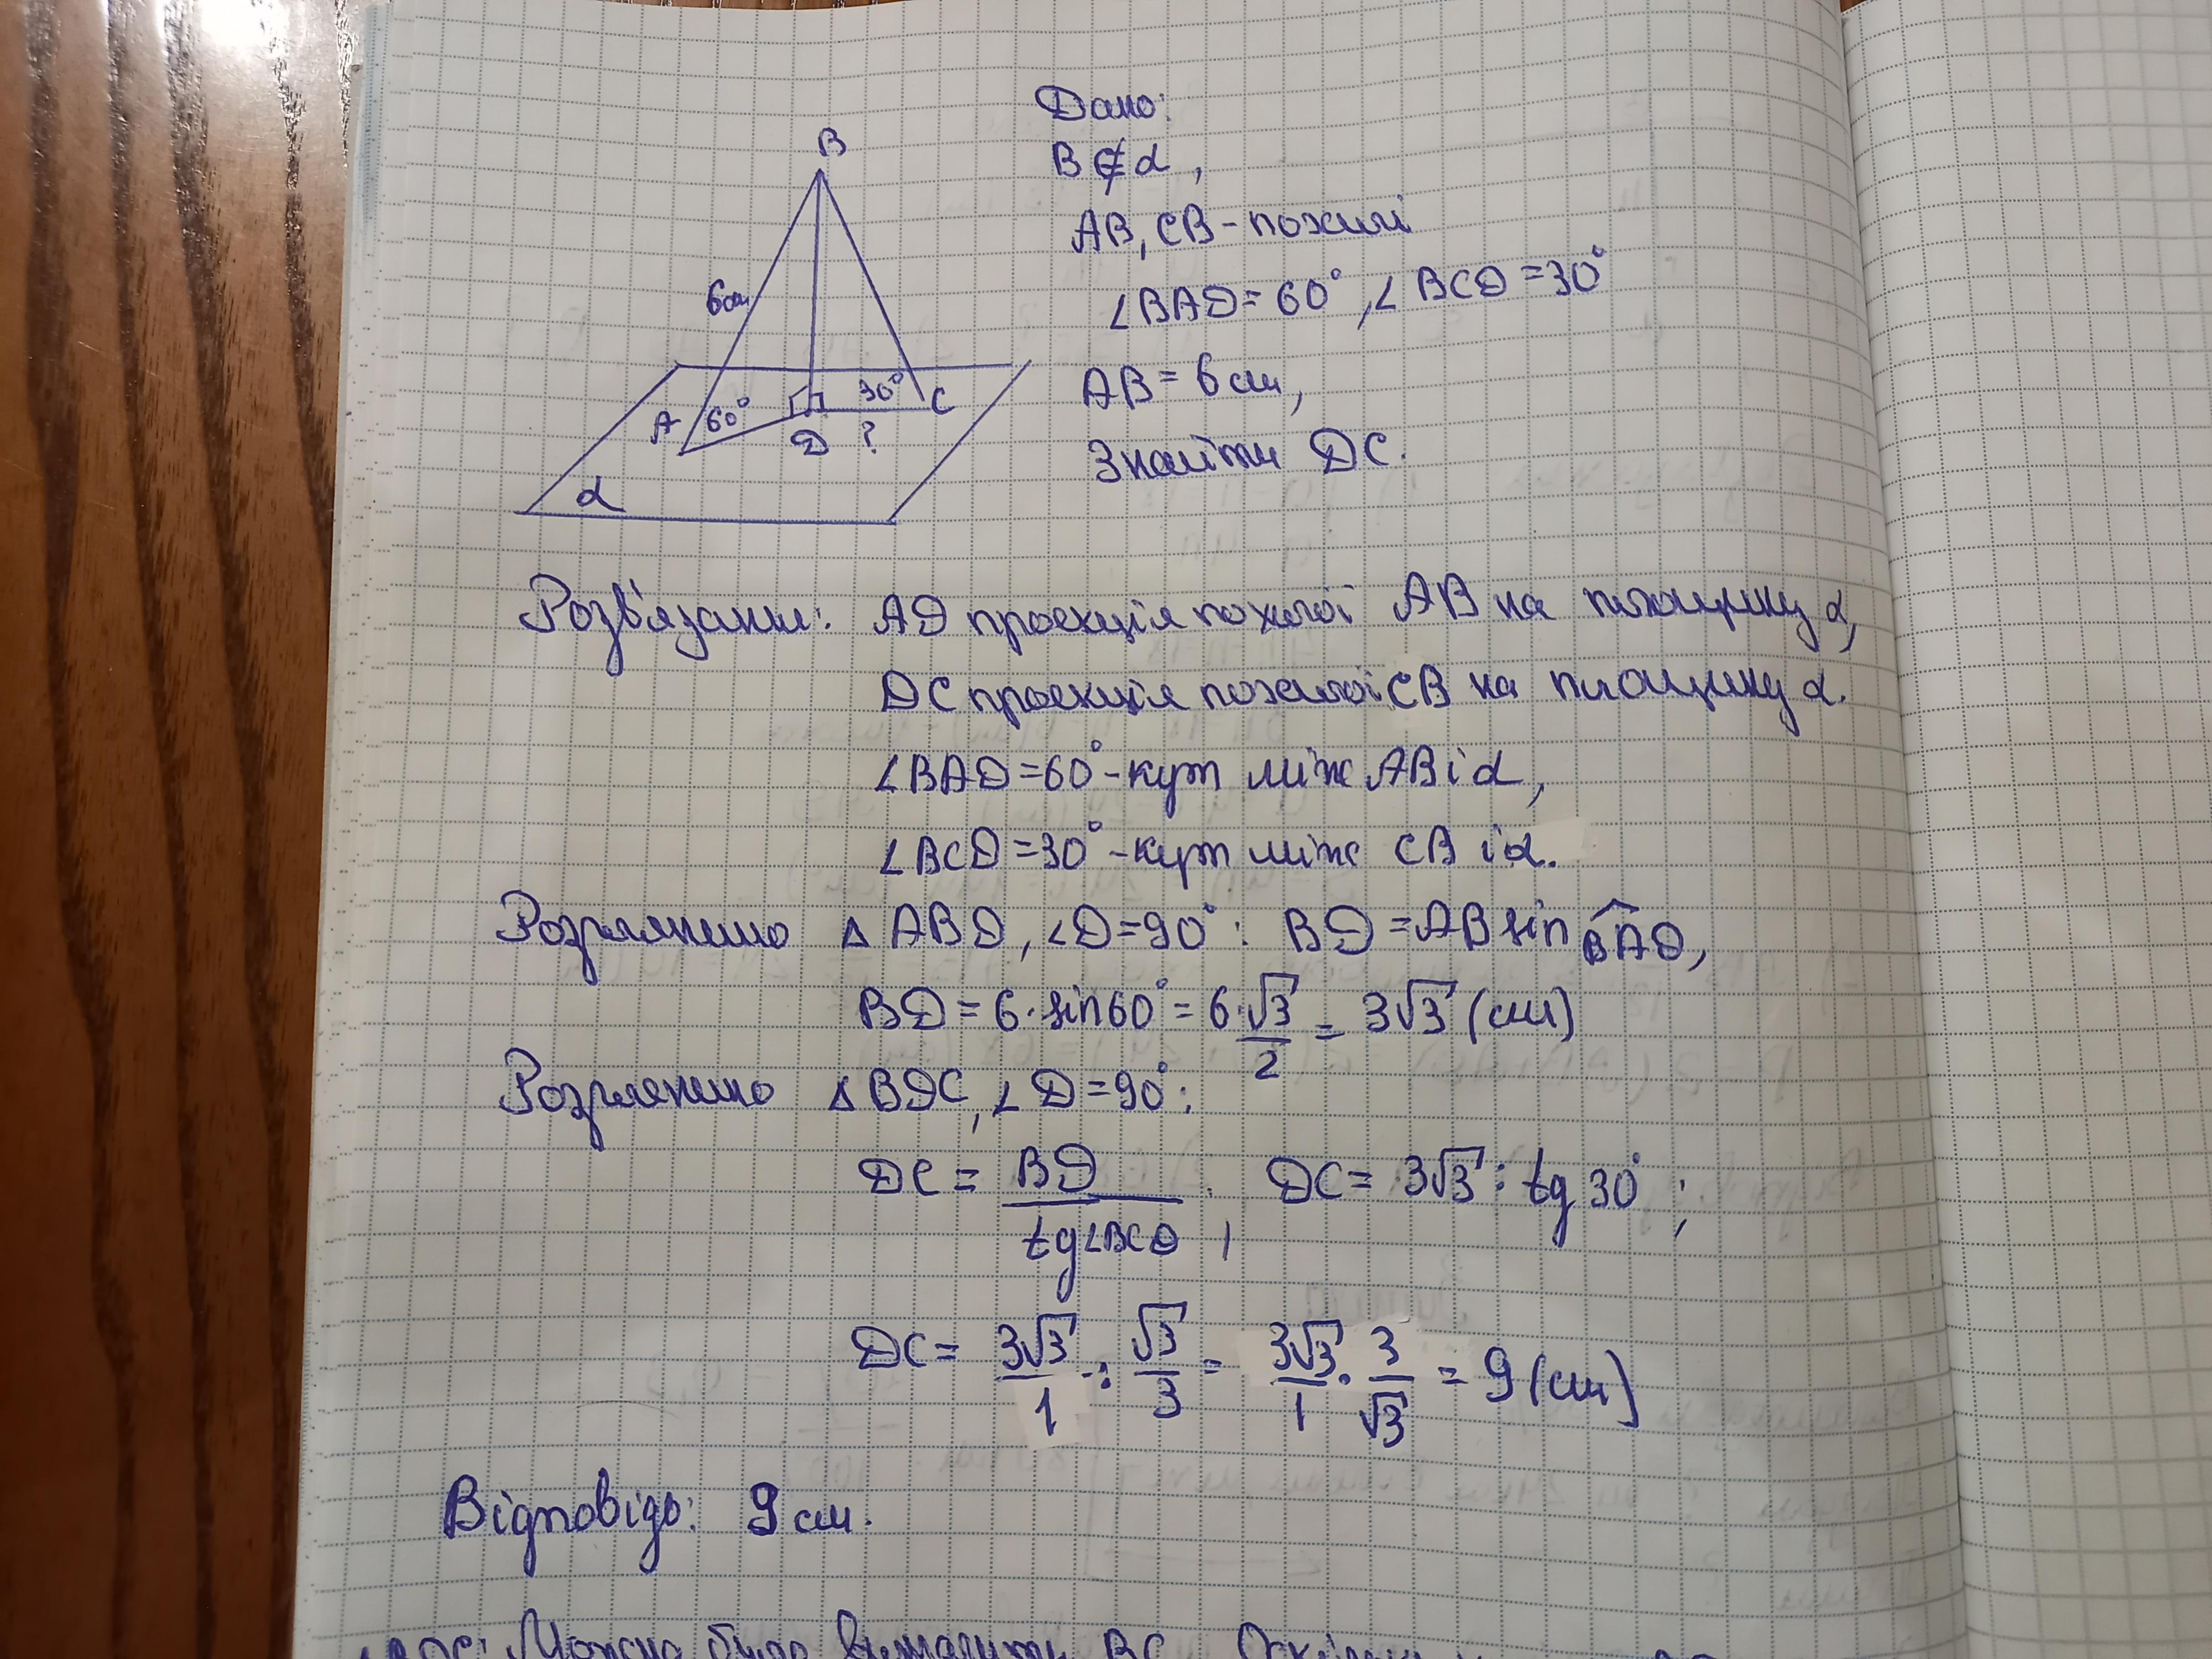 Дано:
B ∉ α,
AB, CB - похилі
∠BAD = 60°, ∠BCD = 30°
AB = 6 см,
Знайти DC.
B
6 см
A 60°
30° C
D ?
α
Розв'язання: AD проекція похилої AB на площину α,
DC проекція похилої CB на площину α.
∠BAD = 60° - кут між AB і α,
∠BCD = 30° - кут між CB і α.
Розглянемо Δ ABD, ∠D = 90°: BD = AB sin BAD,
BD = 6 · sin 60° = 6 · √3/2 = 3√3 (см)
Розглянемо Δ BDC, ∠D = 90°:
DC = BD / tg∠BCD, DC = 3√3 : tg 30°;
DC = 3√3/1 : √3/3 = 3√3/1 · 3/√3 = 9 (см)
Відповідь: 9 см.
Можна було BC.